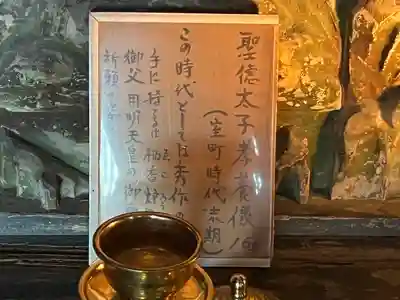 聖徳太子孝養像
(室町時代末期)
この時代としては秀作の
手に持るは柄香炉
えごうろ
御父用明天皇の御
祈願の